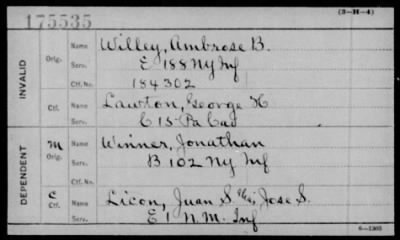 175535
(3-H-4)
INVALID
Orig.
Name Willey, Ambrose B.
Serv. E 188 Ny Inf
Ctf. No. 184302
Ctf.
Name Lawton, George H
Serv. C 15 Pa Cav
DEPENDENT
M
Orig.
Name Winner, Jonathan
Serv. B 102 Ny Inf
Ctf. No.
C
Ctf.
Name Licon, Juan S. Jose S.
Serv. E 1 N.M. Inf
6-1303